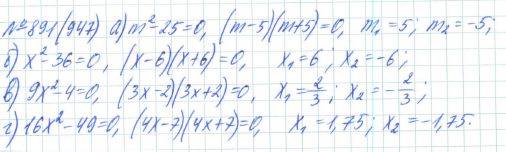 № 891(947) а) m²-25=0, (m-5)(m+5)=0, m₁=5; m₂=-5;
б) x²-36=0, (x-6)(x+6)=0, x₁=6; x₂=-6;
в) 9x²-4=0, (3x-2)(3x+2)=0, x₁=2/3; x₂=-2/3;
г) 16x²-49=0, (4x-7)(4x+7)=0, x₁=1,75; x₂=-1,75.